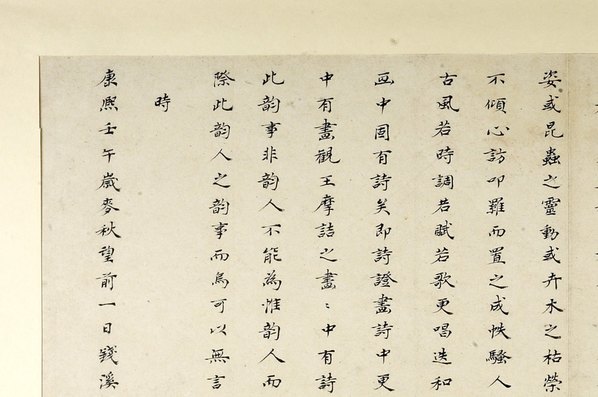 姿或昆蟲之靈動或卉木之枯榮
不傾心訪叩羅而置之成帙騷人
古風若時調若賦若歌更唱迭和
画中固有詩矣即詩證畫詩中更
中有畫觀王摩詰之畫〻中有詩
此韵事非韵人不能為惟韵人而
際此韵人之韵事而烏可以無言
時
康熙壬午歲麥秋望前一日戔溪